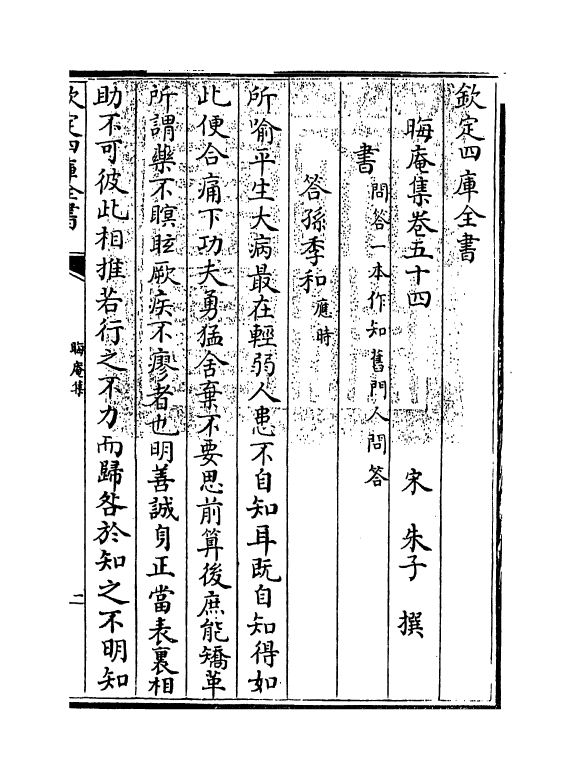 欽定四庫全書
晦庵集卷五十四　宋　朱子　撰
書問答一本作知舊門人問答
答孫季和應時
所喻平生大病最在輕弱人患不自知耳既自知得如
此便合痛下功夫勇猛舍棄不要思前筭後庶能矯革
所謂藥不瞑眩厥疾不瘳者也明善誠身正當表裏相
助不可彼此相推若行之不力而歸咎於知之不明知
欽定四庫全書
晦庵集